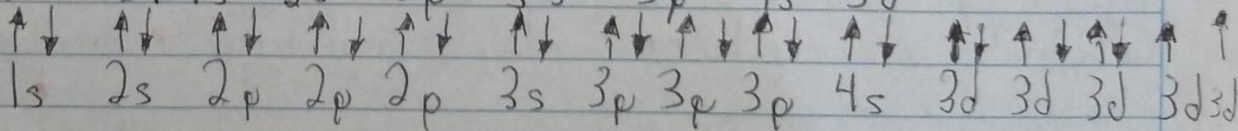 ↑↓ ↑↓ ↑↓ ↑↓ ↑↓ ↑↓ ↑↓ ↑↓ ↑↓ ↑↓ ↑↓ ↑↓ ↑↓ ↑ ↑
1s 2s 2p 2p 2p 3s 3p 3p 3p 4s 3d 3d 3d 3d 3d